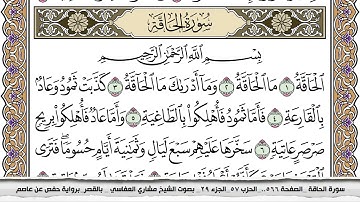 سُورَةُ الْحَاقَّةِ
بِسْمِ اللَّهِ الرَّحْمَٰنِ الرَّحِيمِ
الْحَاقَّةُ ١ مَا الْحَاقَّةُ ٢ وَمَا أَدْرَاكَ مَا الْحَاقَّةُ ٣ كَذَّبَتْ ثَمُودُ وَعَادٌ
بِالْقَارِعَةِ ٤ فَأَمَّا ثَمُودُ فَأُهْلِكُوا بِالطَّاغِيَةِ ٥ وَأَمَّا عَادٌ فَأُهْلِكُوا بِرِيحٍ
صَرْصَرٍ عَاتِيَةٍ ٦ سَخَّرَهَا عَلَيْهِمْ سَبْعَ لَيَالٍ وَثَمَانِيَةَ أَيَّامٍ حُسُومًا فَتَرَى
سورة الحاقة الصفحة ٥٦٦.. الحزب ٥٧ الجزء ٢٩ بصوت الشيخ مشاري العفاسي .. بالقصر برواية حفص عن عاصم